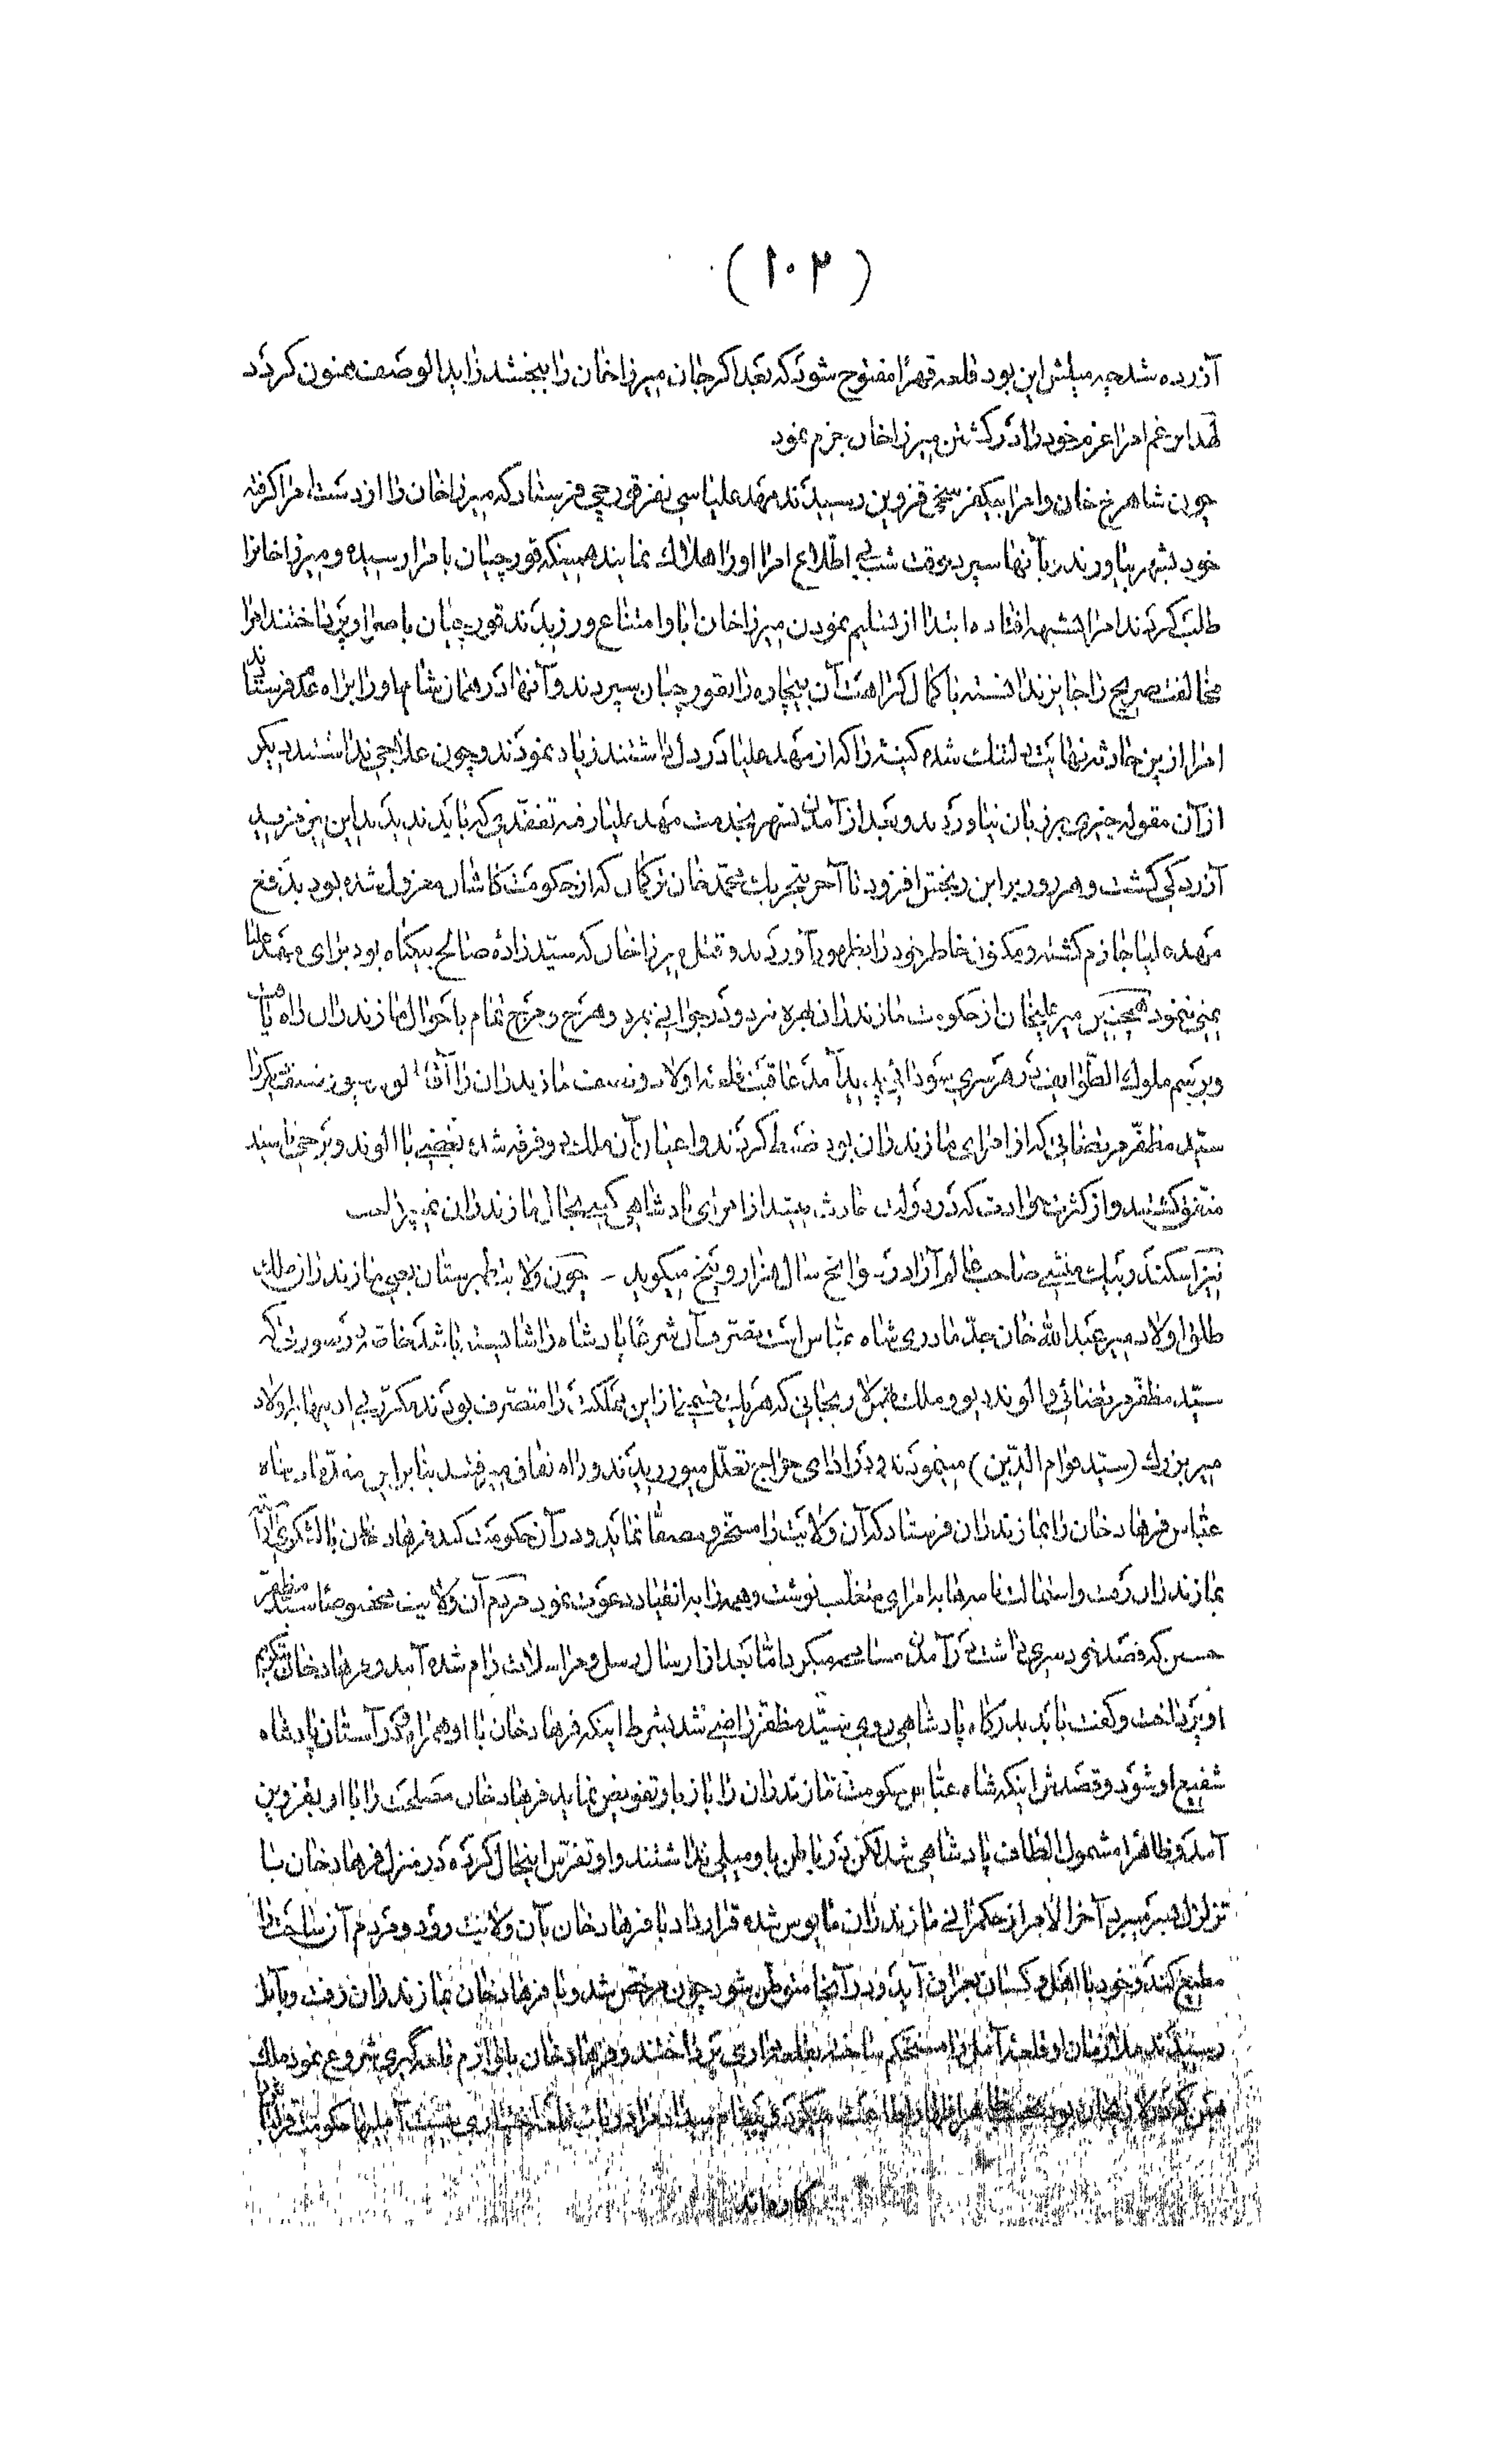 (۱۰۳)
آزرده شد چه میلش این بود قلعه قهراً مفتوح شود که بعد اگر جان میرزا خان را ببخشد زاید الوصف ممنون گردد
لهذا برغم امرا عزم خود را در کشتن میرزا خان جزم نمود
چون شاهرخ خان و امرا بیکفرسخی قزوین رسیدند مهد علیا سی نفر قورچی فرستاد که میرزا خان را از دست امرا گرفته
خود بشهر بیاورند و بآنها سپرد بوقت شب بی اطلاع امرا او را هلاک نمایند همینکه قورچیان بامرا رسیده و میرزا خانرا
طلب کردند امرا بشبهه افتاده ابتدا از تسلیم نمودن میرزا خان ابا و امتناع ورزیدند قورچیان باصرار پرداختند امرا
مخالفت صریح را جایز ندانسته با کمال کراهت آن بیچاره را بقورچیان سپردند و آنها در همان شام او را براه عدم فرستادند
امرا ازین حادثه نهایت دلتنگ شده کینه را که از مهد علیا در دل داشتند زیاد نمودند و چون علاجی نداشتند دیگر
از آن مقوله چیزی بر زبان نیاوردند و بعد از آمدن بشهر بخدمت مهد علیا رفته تفقدی که باید ندیدند این نیز مزید
آزردگی گشت و هر روز بر این رنجش افزود تا آخر بتحریک محمد خان ترکمان که از حکومت کاشان معزول شده بود بدفع
مهد علیا جازم گشته و مکنون خاطر خود را بظهور آوردند و قتل میرزا خان که سید زادهٔ صالح بیگناه بود برای مهد علیا
یمنی ننمود همچنین میر علیخان از حکومت مازندران بهره نبرد و در جوانی بمرد و هرج و مرج تمام باحوال مازندران راه یافت
و برسم ملوک الطوایف در هر سری سودائی پدید آمد عاقبت قلعه اولاد و نصف مازندران را آقا الوند دیو و نصف دیگر را
سید مظفر مرتضائی که از امرای مازندران بود ضبط کردند و اعیان آن ملک دو فرقه شده بعضی با الوند و برخی با سید
متفق گشتند و از کثرت حوادث که در دولت حادث میشد از امرای پادشاهی کسی بحال مازندران نمی پرداخت
نیز اسکندر بیک منشی صاحب عالم آرا در وقایع سال هزار و پنج میگوید – چون ولایت طبرستان یعنی مازندران ملک
طلق اولاد میر عبدالله خان جد مادری شاه عباس است بتصرف آن شرعاً پادشاه را شایسته باشد خاصه در صورتی که
سید مظفر مرتضائی و الوند دیو و ملک بهمن لاریجانی که هر یک قسمی از این مملکت را متصرف بودند مکرر بی ادبیها باولاد
میر بزرگ (سید قوام الدین) مینمودند و در ادای خراج تعلل میورزیدند و راه نفاق میرفتند بنابراین مقدمات شاه
عباس فرهاد خان را بمازندران فرستاد که آن ولایت را مسخر و مصفا نماید و در آن حکومت کند فرهاد خان با لشکری آراسته
بمازندران رفت و استمالت نامه ها بامرای متغلب نوشت و همه را بانقیاد دعوت نمود مردم آن ولایت مخصوصاً سید مظفر
حسین که قصد خود سری داشت در آمدن مسامحه میکرد اما بعد از ارسال رسل و مراسلات رام شده آمد و فرهاد خان بتکریم
او پرداخت و گفت باید بدرگاه پادشاهی روی سید مظفر راضی شد بشرط اینکه فرهاد خان با او همراه و در آستان پادشاه
شفیع او شود و قصدش اینکه شاه عباس حکومت مازندران را باز باو تفویض نماید فرهاد خان مصلحت را با او بقزوین
آمد و ظاهراً مشمول الطاف پادشاهی شد لکن در باطن باو میلی نداشتند و او تفرس اینحال کرده در منزل فرهاد خان با
تزلزل بسر میبرد آخر الامر از حکمرانی مازندران مایوس شده قرارداد با فرهاد خان بآن ولایت رود و مردم آن ساحت را
مطیع کند و خود با اهل و کسان بعراق آید و در آنجا متوطن شود چون مرخص شد و با فرهاد خان بمازندران رفت و بآمل
رسیدند ملازمان او قلعهٔ آمل را مستحکم ساخته بقلعه داری پرداختند و فرهاد خان بلوازم قلعه گیری شروع نمود ملک
بهمن که در لاریجان بود بحسب ظاهر اظهار اطاعت میکرد و پیغام میداد
کارهاند